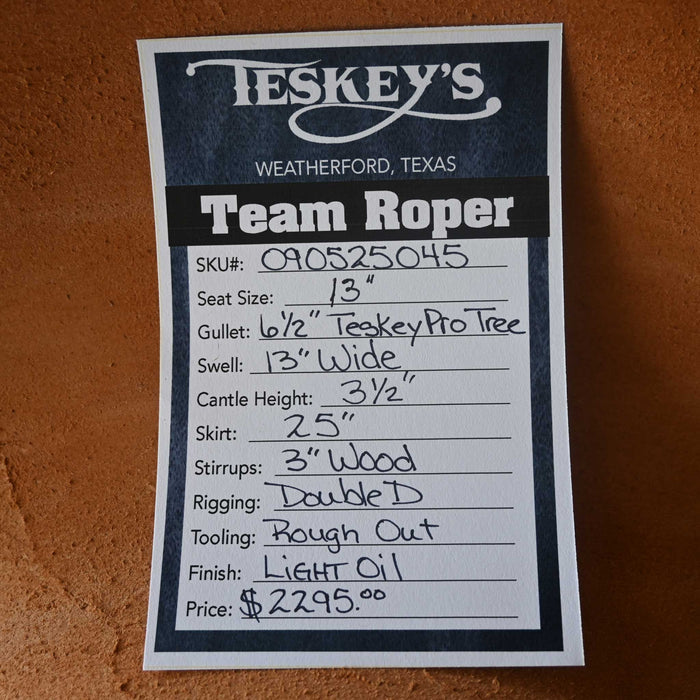 TESKEY'S
WEATHERFORD, TEXAS
Team Roper
SKU#: 090525045
Seat Size: 13"
Gullet: 6 1/2" Teskey Pro Tree
Swell: 13" Wide
Cantle Height: 3 1/2"
Skirt: 25"
Stirrups: 3" Wood
Rigging: Double D
Tooling: Rough Out
Finish: LIGHT Oil
Price: $2295.00